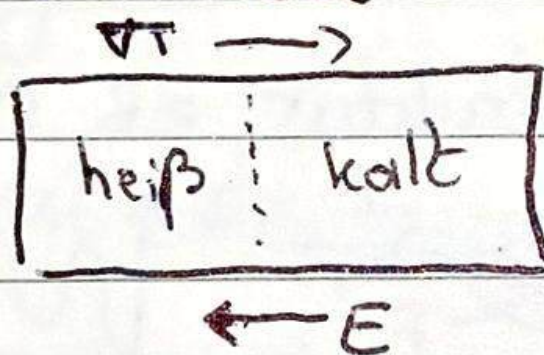 ∇T →
heiß kalt
← E